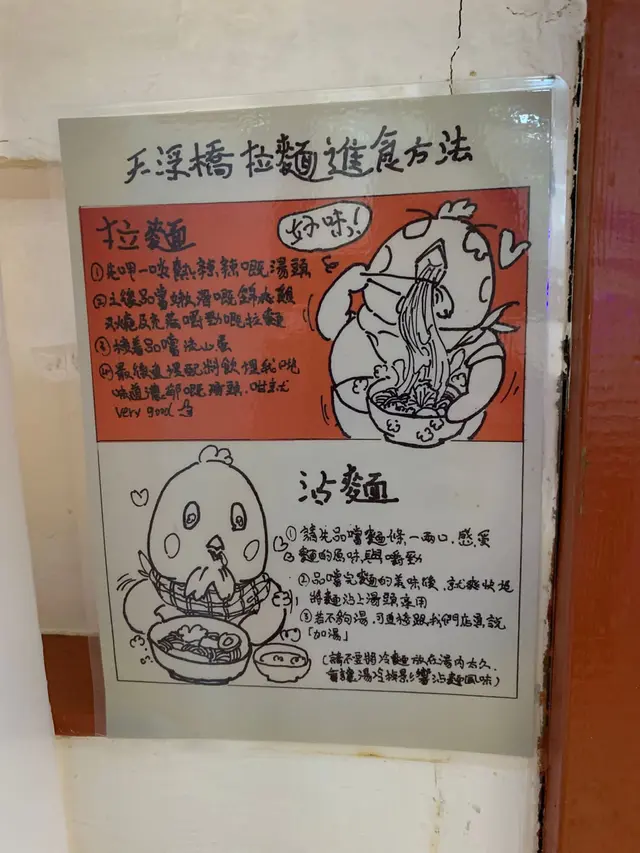 天浮橋拉麵進食方法
拉麵
好味!
①先呷一啖熱辣辣嘅湯頭
②之後品嚐嫩滑嘅
叉燒及充滿嚼勁嘅拉麵
③接着品嚐流心蛋
④最後連埋配料飲埋我哋
味道濃郁嘅湯頭,咁就
very good
沾麵
①請先品嚐麵條一兩口,感受
麵的原味與嚼勁
②品嚐完麵的美味後,就爽快地
將麵沾上湯頭享用
③若不夠湯,可直接跟我們店員說
「加湯」
(請不要將冷麵放在湯內太久,
會讓湯冷掉影響沾麵風味)